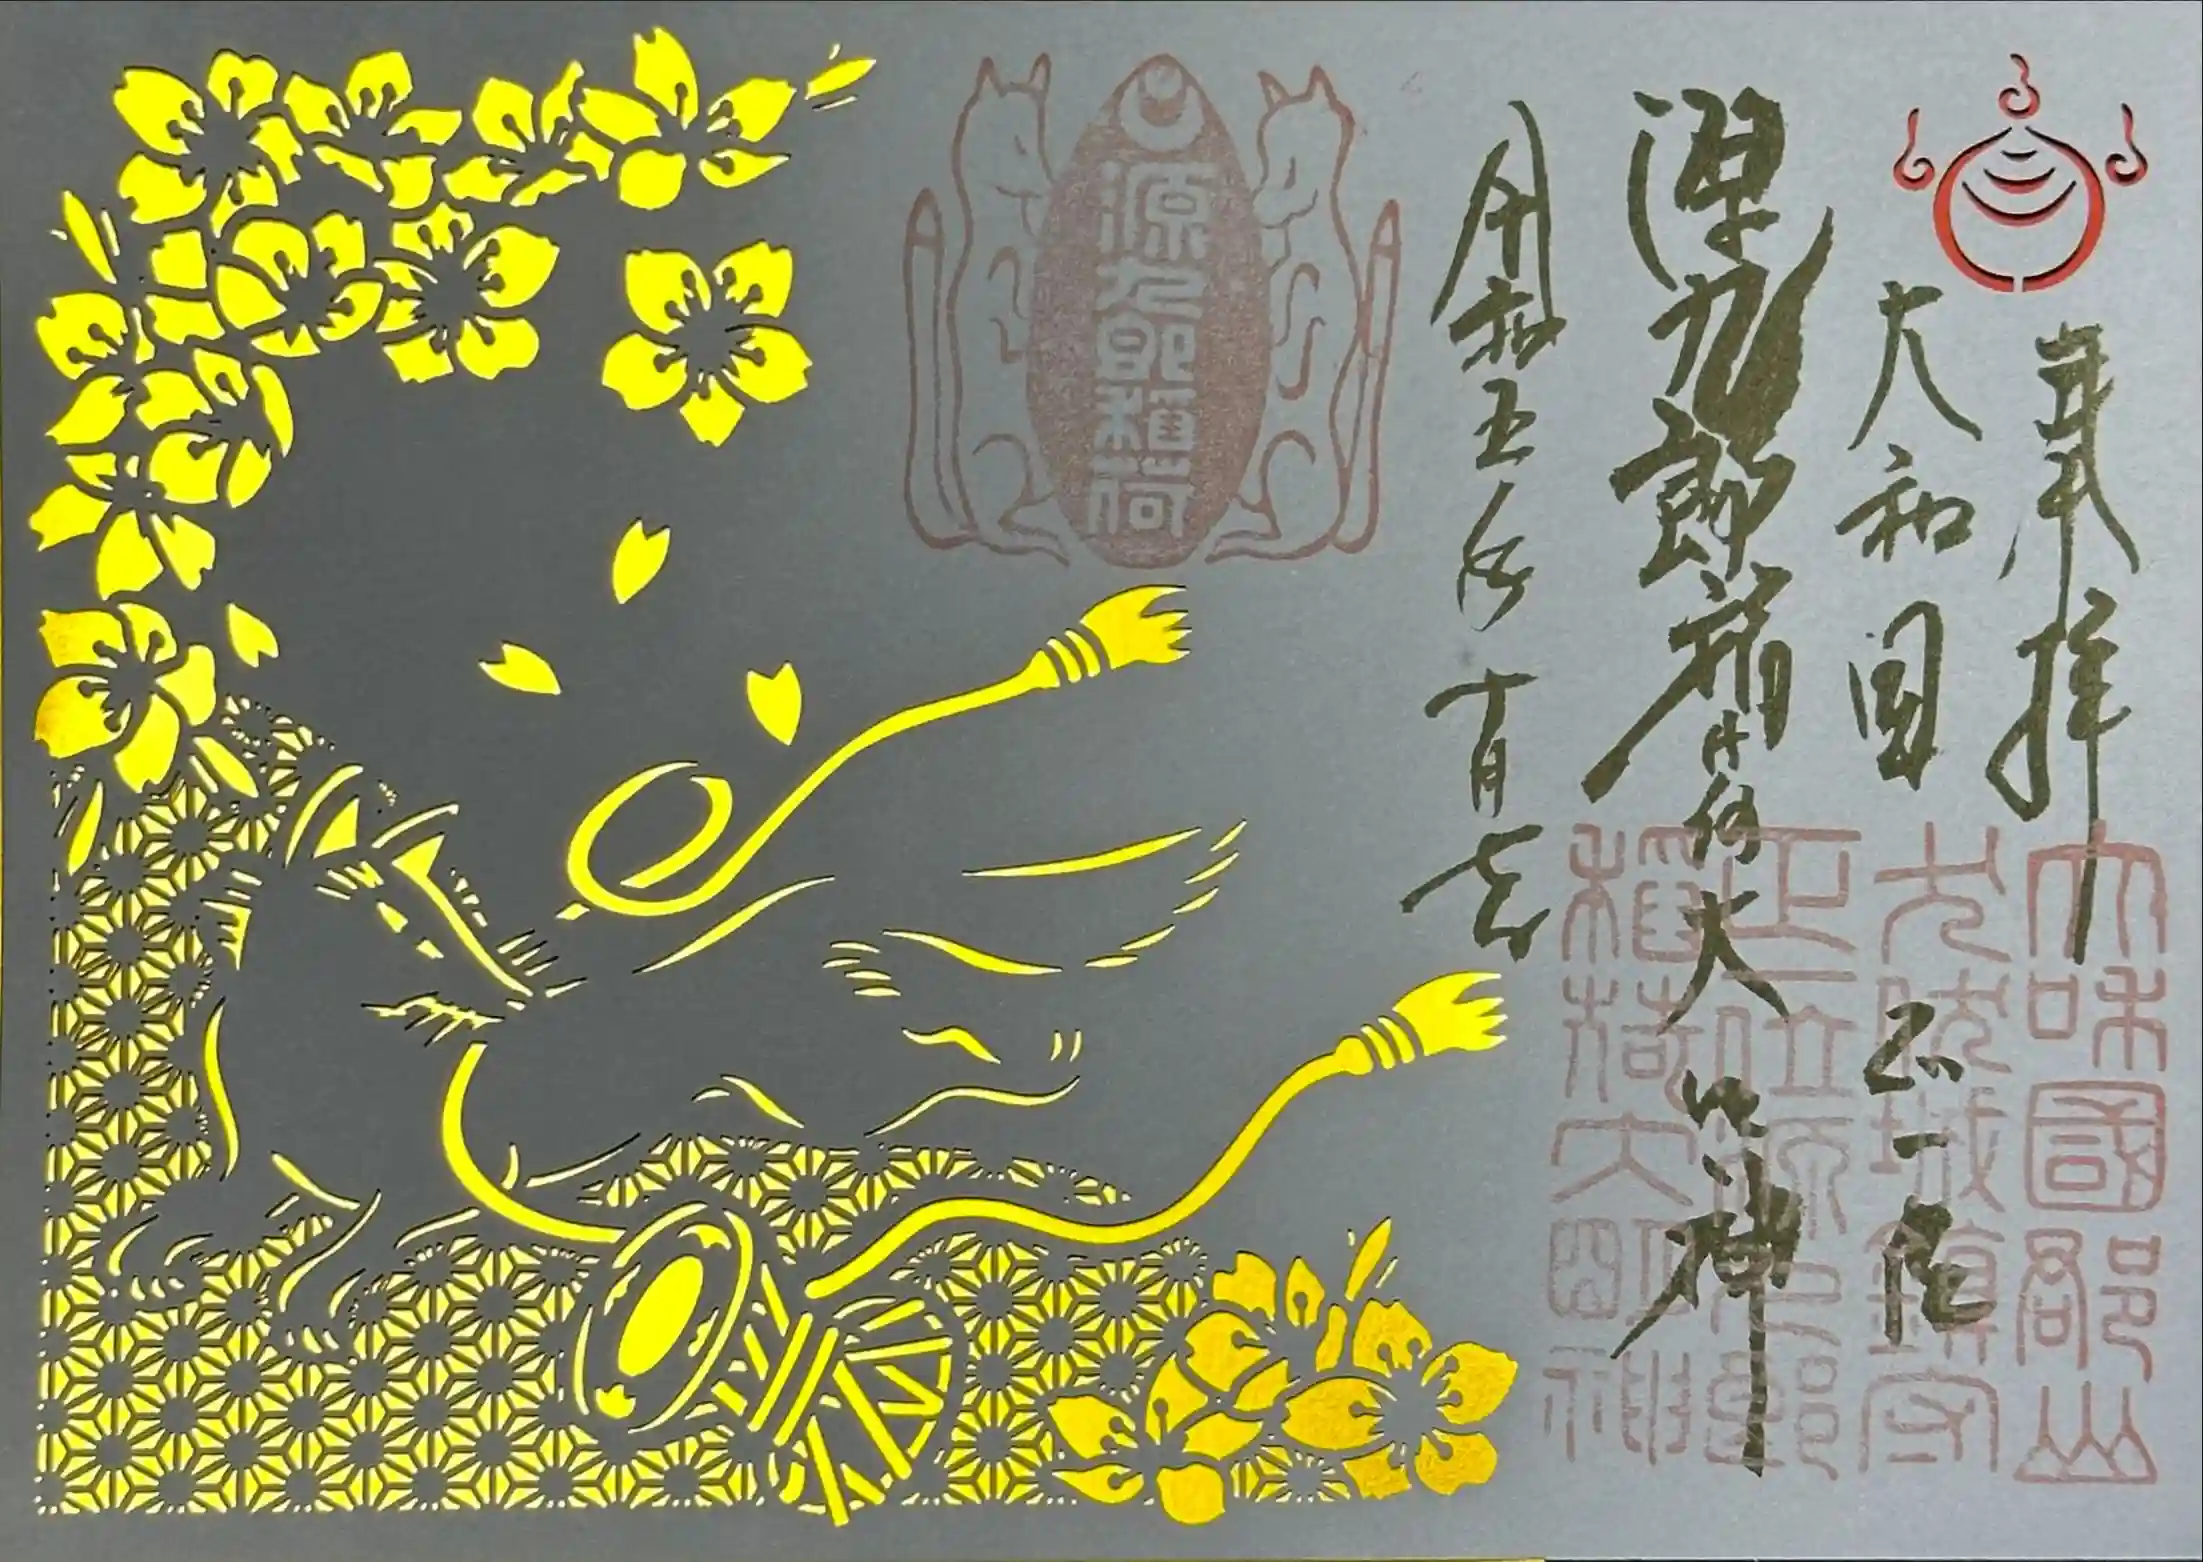 奉拝
大和国 正一位
源九郎稲荷大明神
令和五年
源九郎稲荷
大和國郡山
城鎮守
正一位源九郎
稲荷大明神